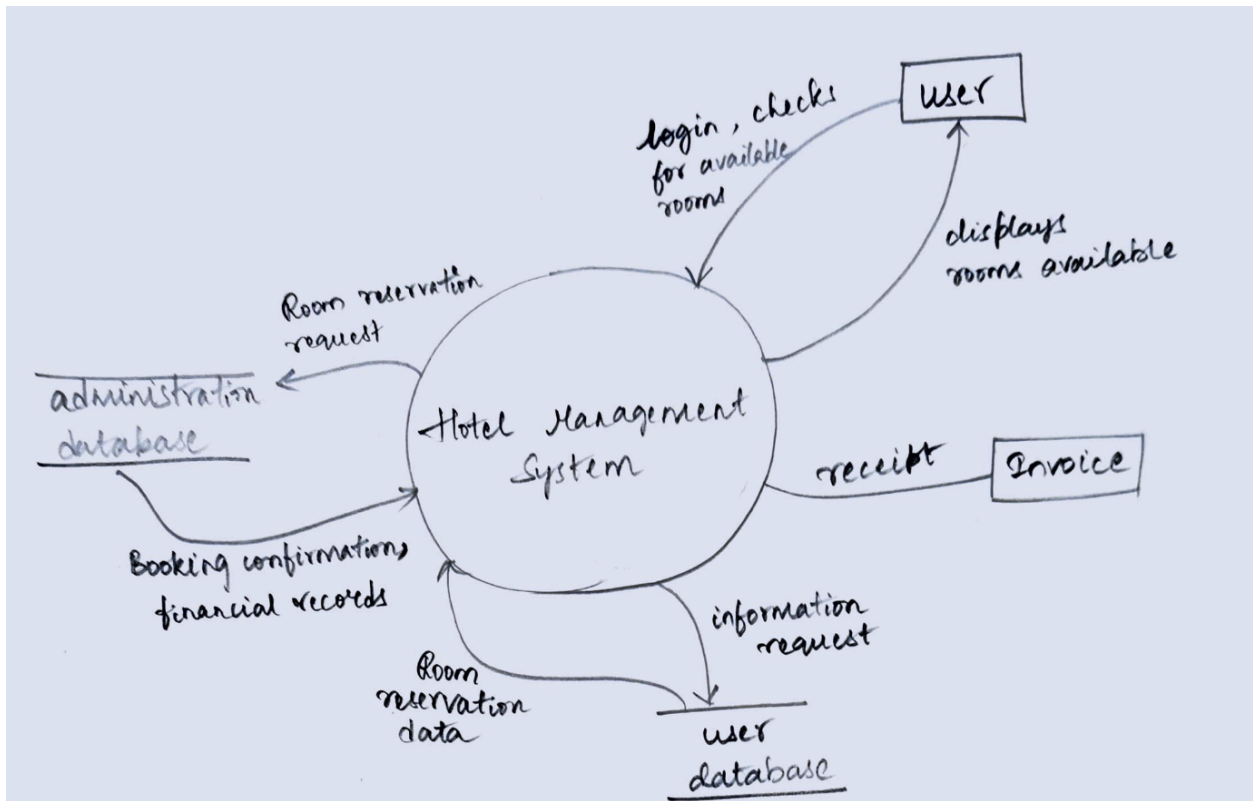 user
login, checks
for available
rooms
displays
rooms available
Room reservation
request
administration
database
Hotel Management
System
receipt
Invoice
Booking confirmation,
financial records
information
request
Room
reservation
data
user
database